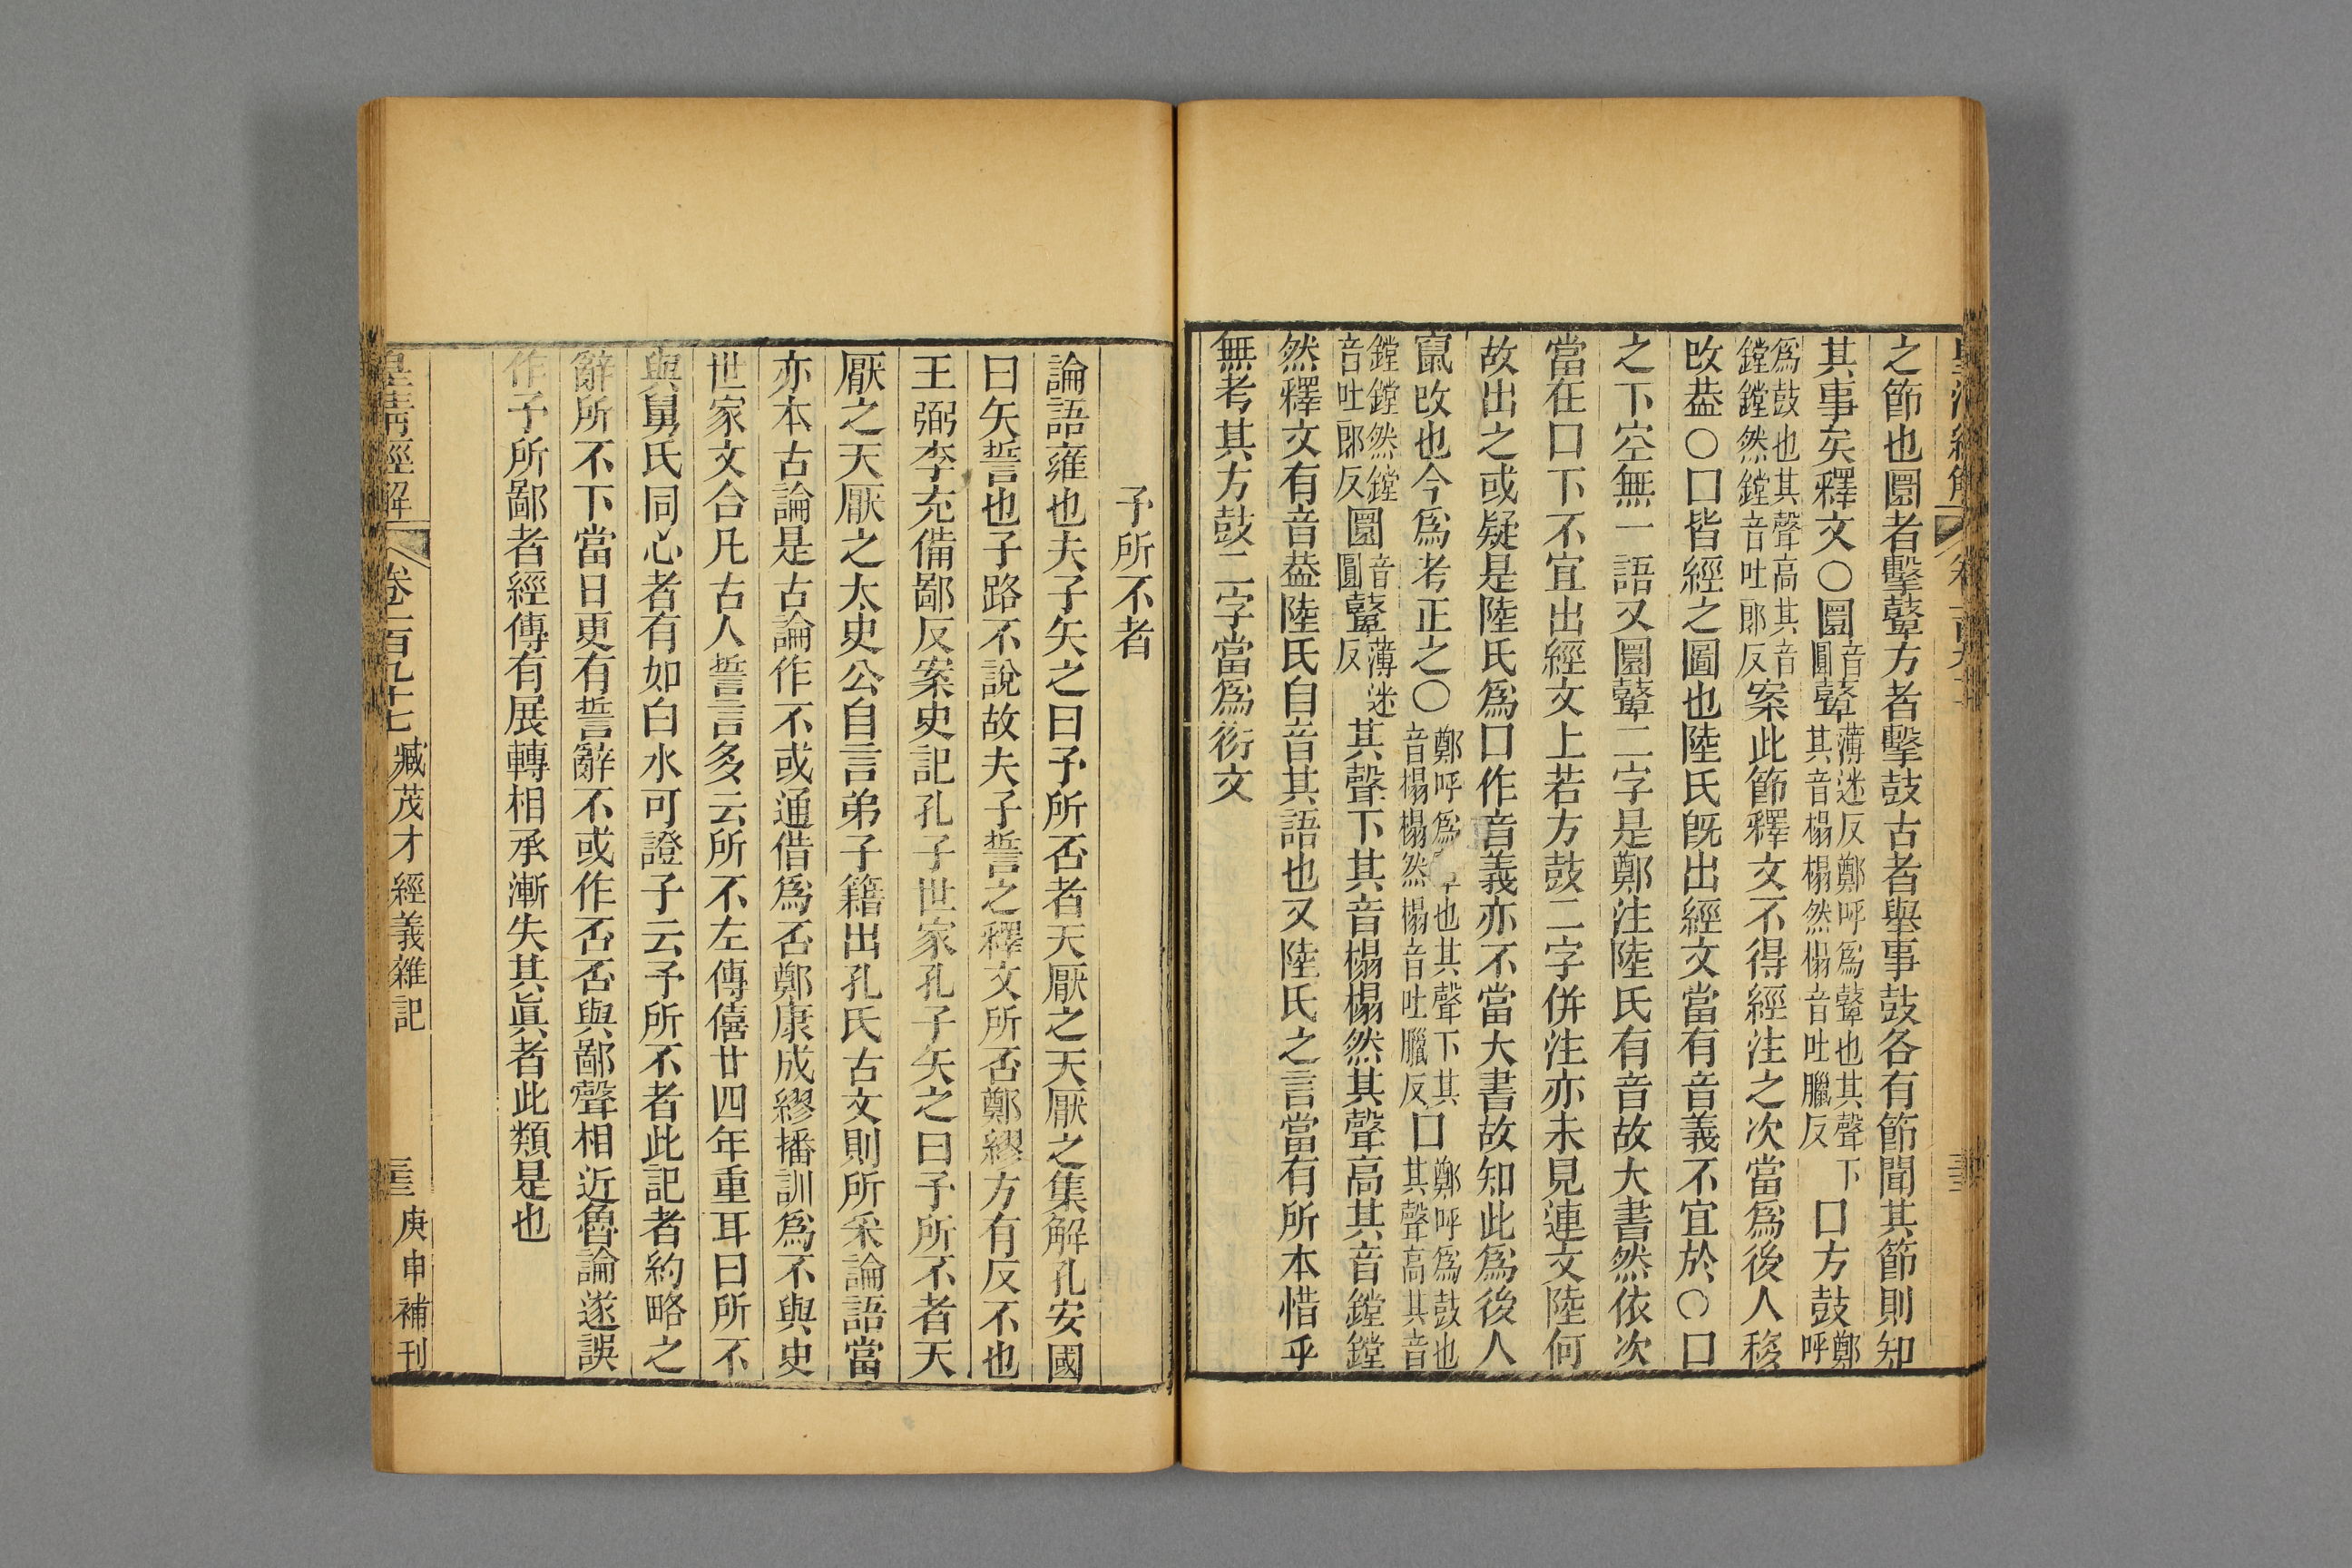 之節也圜者擊鼙方者擊鼓古者舉事鼓各有節聞其節則知
其事矣釋文〇圜音圓鼙薄迷反鄭呼爲鼙也其聲下其音榻榻然榻音吐臘反口方鼓鄭呼
爲鼓也其聲高其音鏜鏜然鏜音吐郎反案此節釋文不得經注之次當爲後人移
改葢〇口皆經之圖也陸氏旣出經文當有音義不宜於〇口
之下空無一語又圜鼙二字是鄭注陸氏有音故大書然依次
當在口下不宜出經文上若方鼓二字併注亦未見連文陸何
故出之或疑是陸氏爲口作音義亦不當大書故知此爲後人
竄改也今爲考正之〇鄭呼爲也其聲下其音榻榻然榻音吐臘反口鄭呼爲鼓也其聲高其音
鏜鏜然鏜音吐郎反圜音圓鼙薄迷反其聲下其音榻榻然其聲高其音鏜鏜
然釋文有音葢陸氏自音其語也又陸氏之言當有所本惜乎
無考其方鼓二字當爲衍文
予所不者
論語雍也夫子矢之曰予所否者天厭之天厭之集解孔安國
曰矢誓也子路不說故夫子誓之釋文所否鄭繆方有反不也
王弼李充備鄙反案史記孔子世家孔子矢之曰予所不者天
厭之天厭之太史公自言弟子籍出孔氏古文則所采論語當
亦本古論是古論作不或通借爲否鄭康成繆播訓爲不與史
世家文合凡古人誓言多云所不左傳僖廿四年重耳曰所不
與舅氏同心者有如白水可證子云予所不者此記者約略之
辭所不下當日更有誓辭不或作否否與鄙聲相近魯論遂誤
作予所鄙者經傳有展轉相承漸失其眞者此類是也
皇淸經解 卷一百九十七 臧茂才經義雜記 庚申補刊